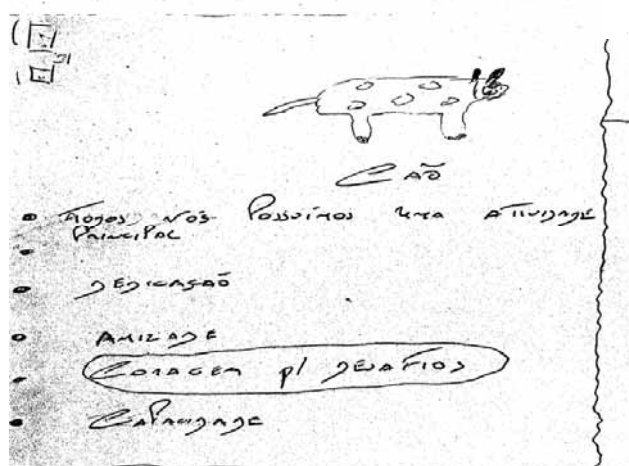 Cão
Todos nós possuímos uma atividade
principal
Dedicação
Amizade
Coragem p/ desafios
Capacidade